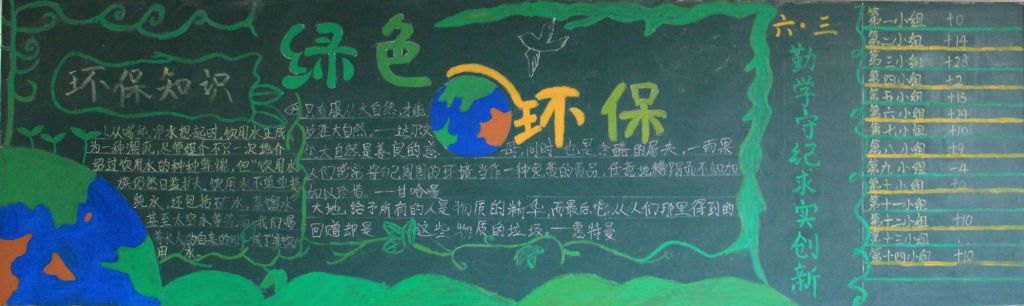 绿色
环保
环保知识
一种潮流,尽管媒介不只一次地介
绍过饮用水的种种弊端,但"饮用水
族仍然日益扩大,饮用水不
纯水,还包括矿水,蒸馏水
甚至太空水等
用水。
只有服从大自然,才能
大自然是善良的慈母,同时也是冷酷的屠夫。一雨果
人们常常将自己周围的环境当作一种免费的商品,任意地糟蹋而不知加
加以珍惜。一甘哈曼
大地,给予所有的人是物质的精华,而最后它从人们那里得到的
回赠却是这些物质的垃圾。一惠特曼
六·三
勤学守纪求实创新
第一小组 +0
第二小组 +14
第三小组 +23
第四小组 +2
第五小组 +15
第六小组 +24
第七小组 +10
第八小组 +9
第九小组 -4
第十小组
第十一小组
第十二小组 +10
第十三小组
第十四小组 +10